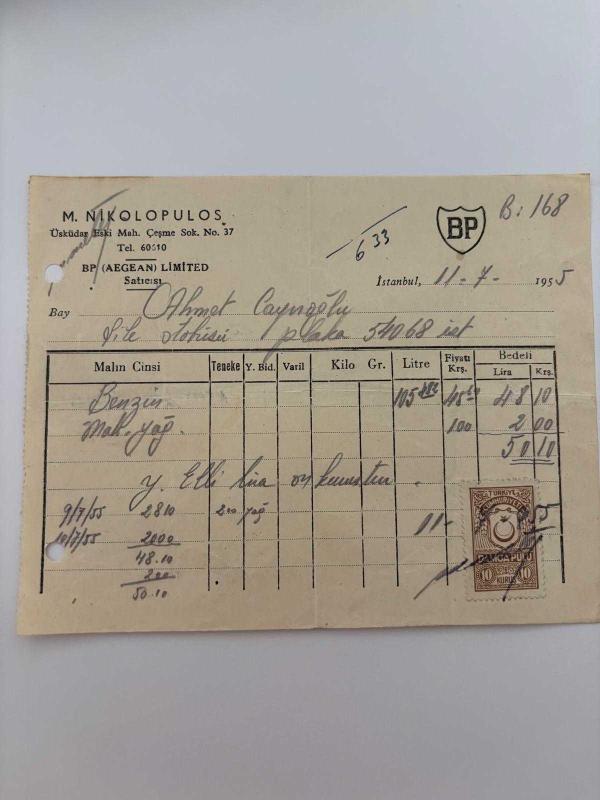 M. NİKOLOPULOS
Üsküdar Eski Mah. Çeşme Sok. No. 37
Tel. 60610
BP (AEGEAN) LIMITED
Satıcısı
6 33
BP
B: 168
İstanbul, 11-7-1955
Bay Ahmet
Şile otobüsü plaka 54068 ist
Malın Cinsi Teneke Y. Bid. Varil Kilo Gr. Litre Fiyatı Krş. Bedeli Lira Krş.
Benzin 105 48 10
Mak. yağ. 100 2 00
50 10
Y. Elli lira on kuruştur.
9/7/55 2810 200 yağ
10/7/55 2000
48.10
200
50.10
11-
55
TÜRKİYE
CUMHURİYETİ
10 KURUŞ 10